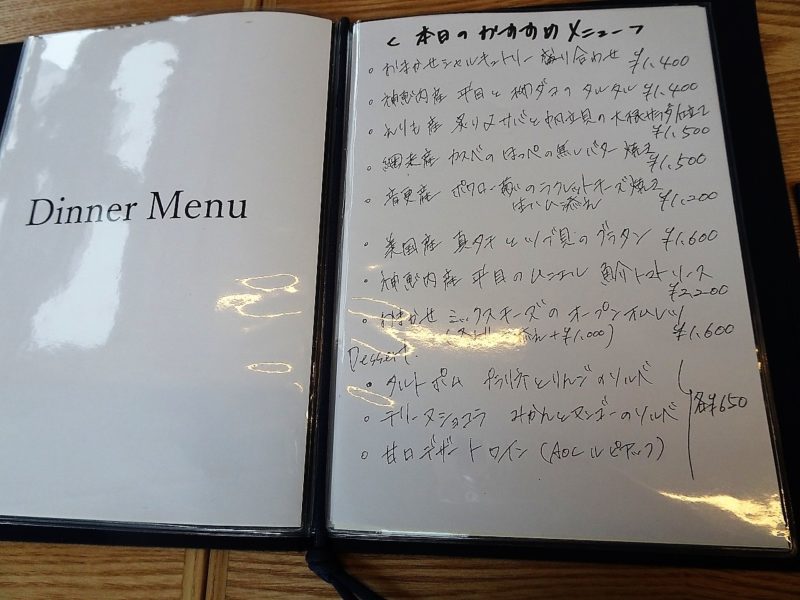 Dinner Menu
< 本日のおすすめメニュー >
・おまかせシャルキュトリー盛り合わせ ¥1,400
・神恵内産 平目と柳ダコのタルタル ¥1,400
・えりも産 炙り〆サバと帆立貝の大根サラダ仕立て
¥1,500
・網走産 カスベのほっぺの焦しバター焼き ¥1,500
・音更産 のラクレットチーズ焼き
添え ¥1,200
・ 真タチとツブ貝のグラタン ¥1,600
・神恵内産 平目のムニエル 魚介トマトソース
¥2,200
・おまかせ ミックスチーズのオープンオムレツ
添え +¥1,000) ¥1,600
Dessert.
・タルトポム プラリネとりんごのソルベ
・テリーヌショコラ みかんとマンゴーのソルベ 各¥650
・甘口デザートワイン (AOCルピアック)